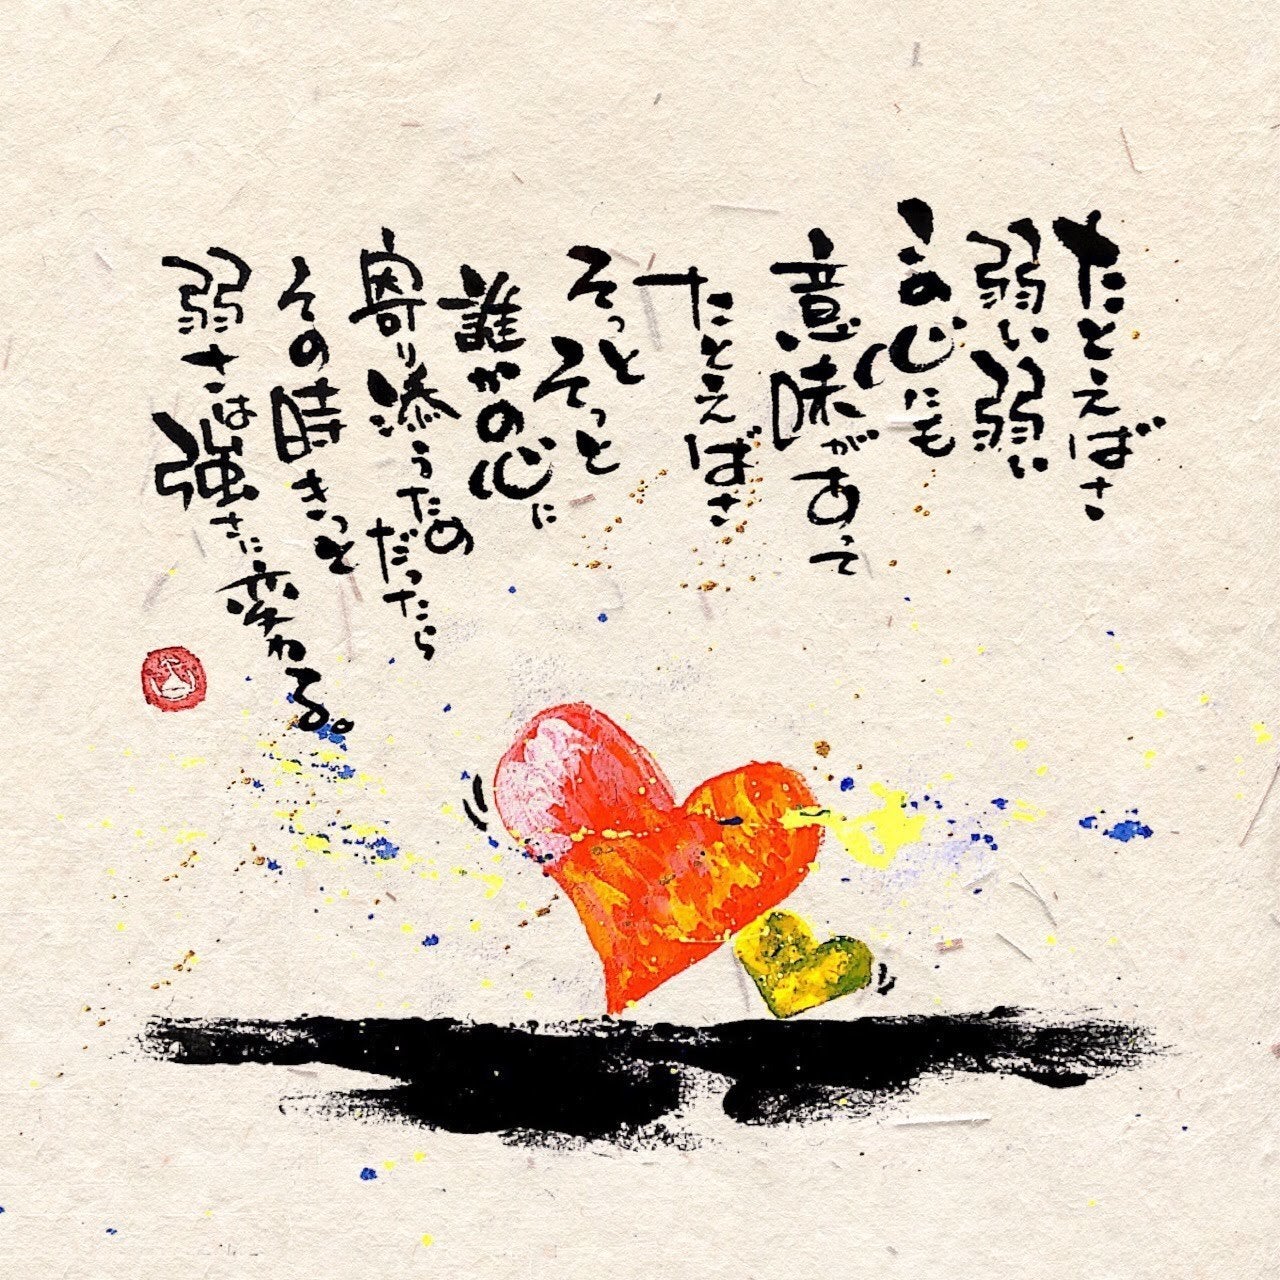 たとえばさ
弱い弱い
この心にも
意味があって
たとえばさ
そっと
そっと
誰かの心に
寄り添うための
だったら
その時きっと
弱さは
強さに変わる。